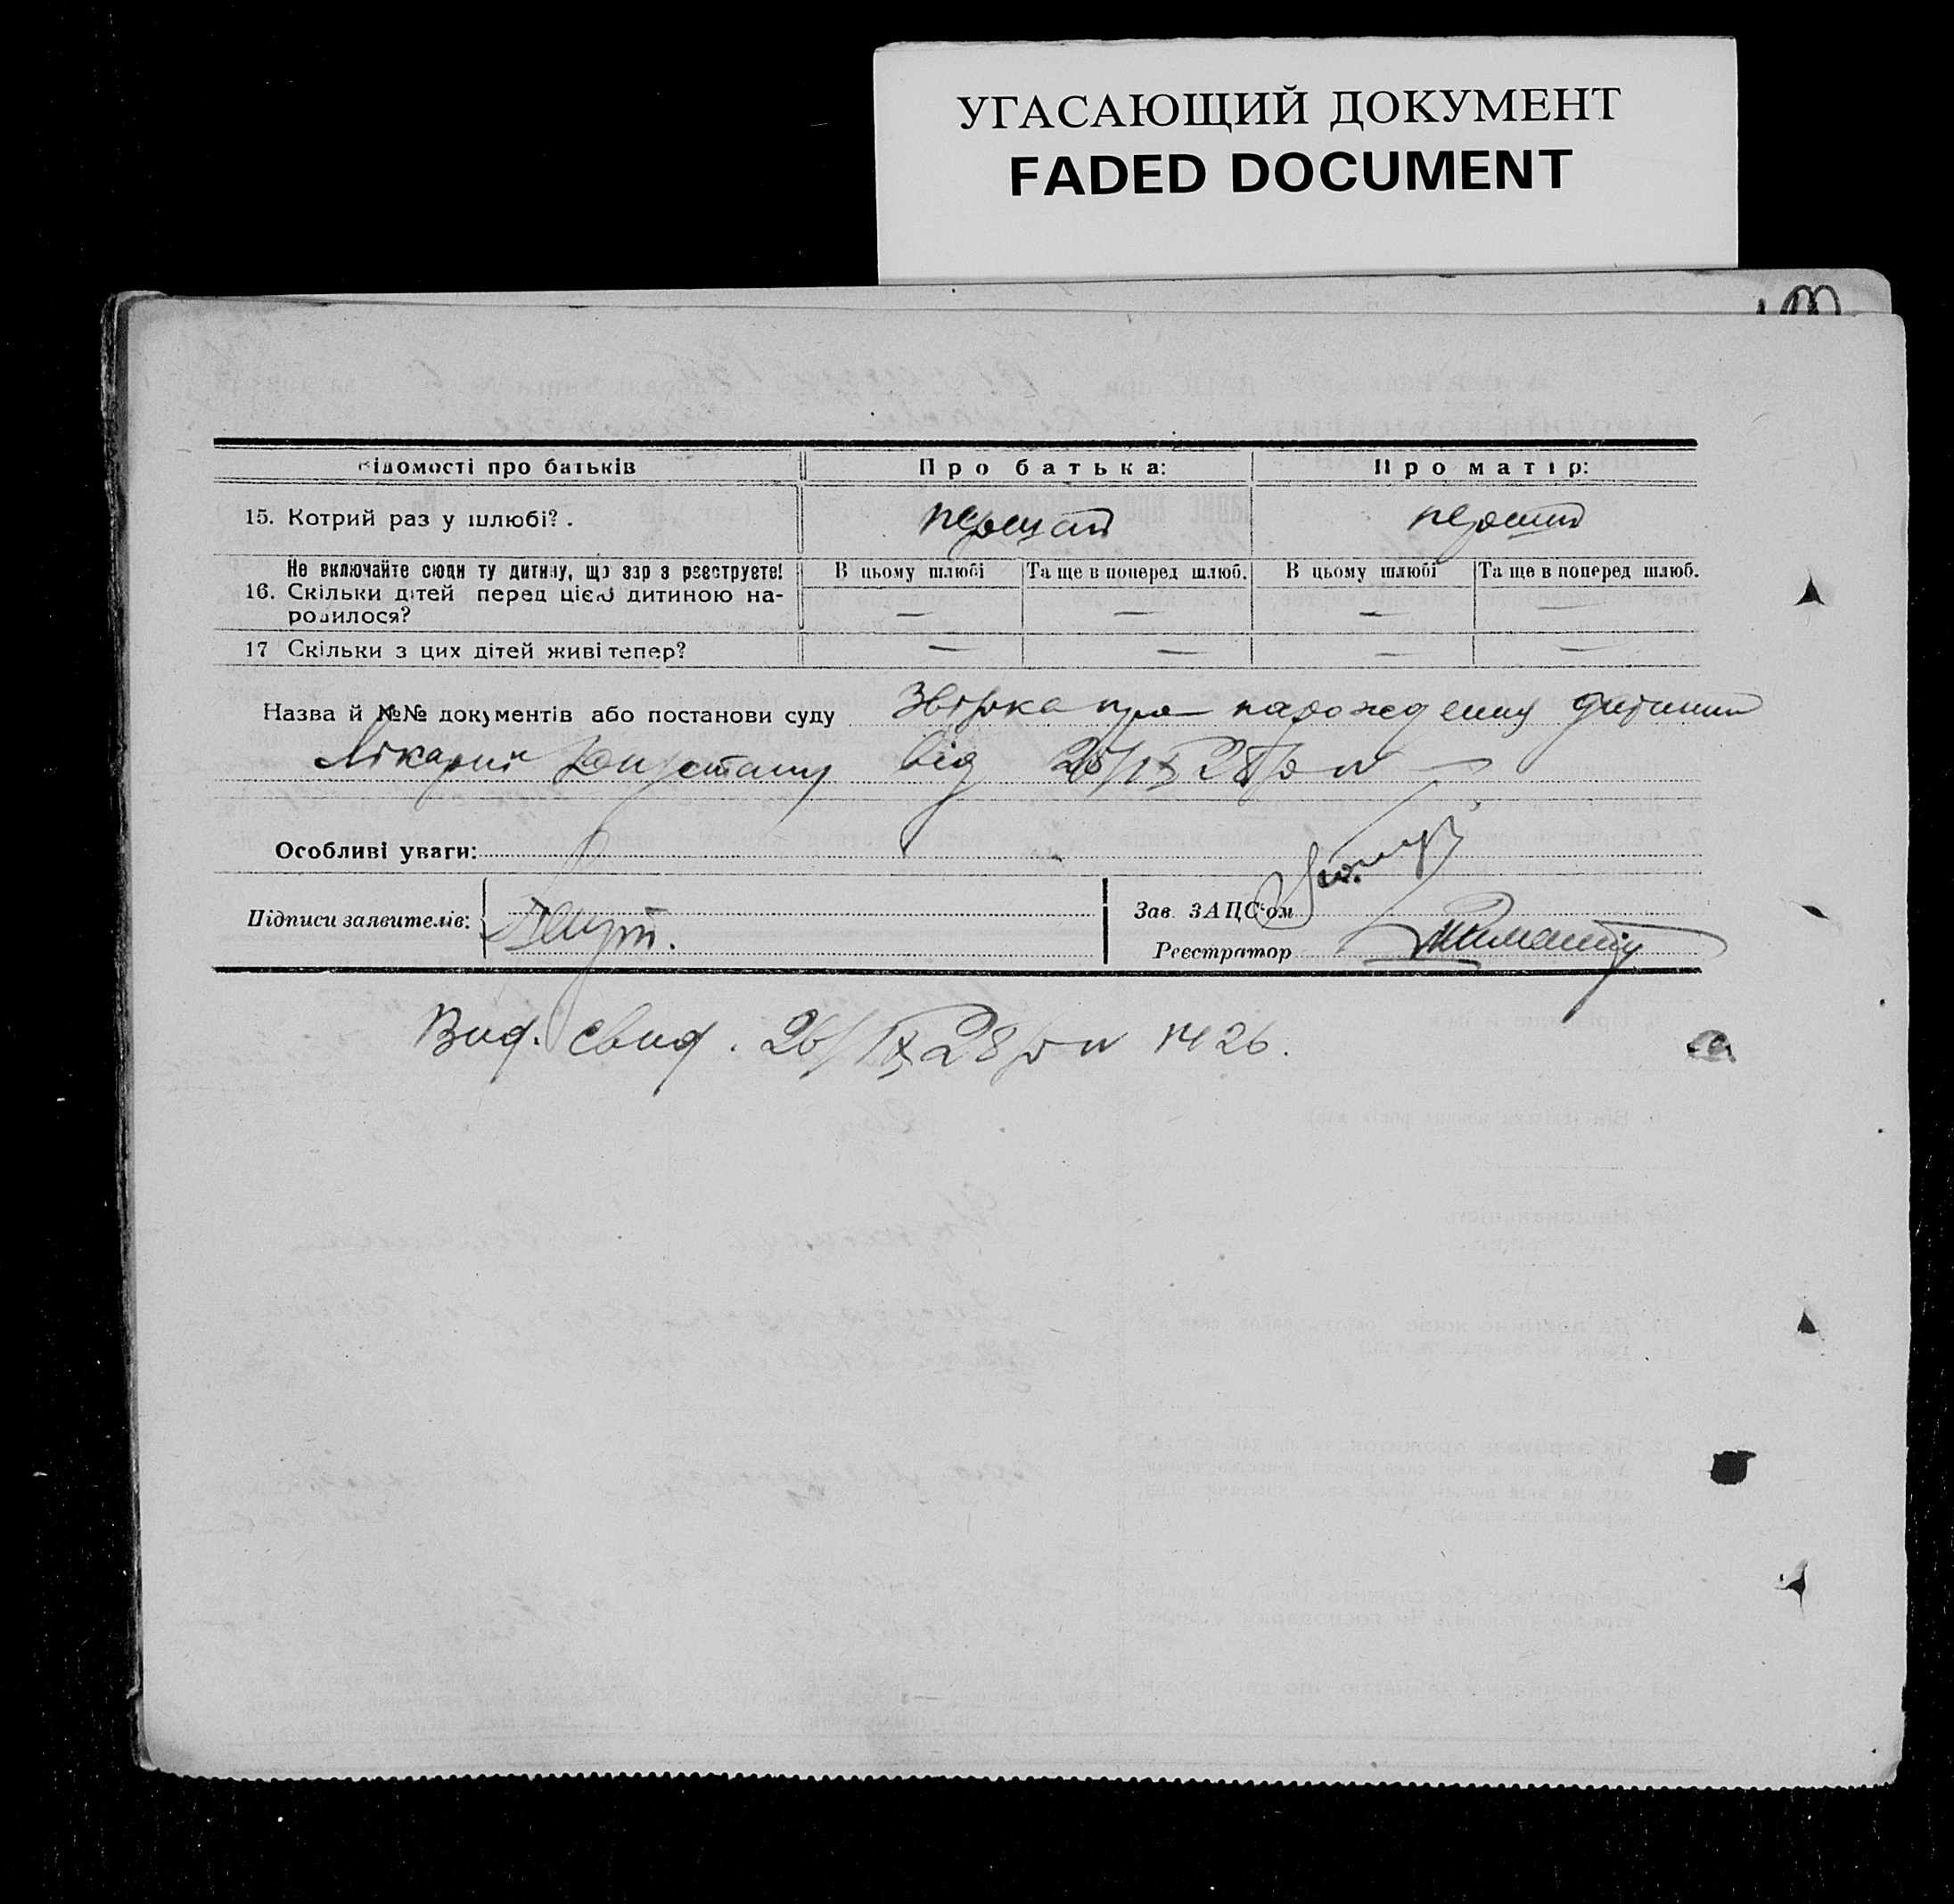 УГАСАЮЩИЙ ДОКУМЕНТ
FADED DOCUMENT
Відомості про батьків Про батька: Про матір:
15. Котрий раз у шлюбі? . перший перший
Не включайте сюди ту дитину, що зар з реєструєте! В цьому шлюбі Та ще в поперед шлюб. В цьому шлюбі Та ще в поперед шлюб.
16. Скільки дітей перед цією дитиною на- — — — —
родилося?
17 Скільки з цих дітей живі тепер? — — — —
Назва й №№ документів або постанови суду про народження дитини
Лікарні від 26/IX 28 р
Особливі уваги:
Підписи заявителів: Зав. ЗАЦС'ом
Реєстратор
Вид. свид. 26/IX 28 р № 26.